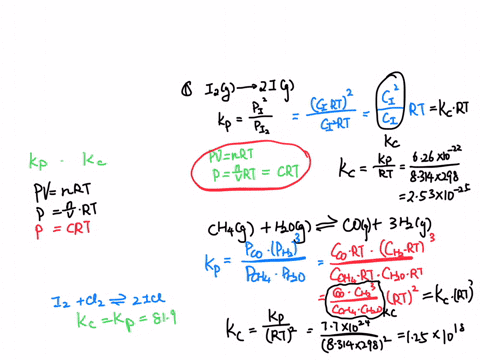 ① I₂(g) → 2I(g)
Kp = P_I² / P_I₂ = (C_I RT)² / C_I² RT = C_I² / C_I RT = Kc·RT
Kc
PV = nRT
P = n/V RT = CRT
Kc = Kp / RT = 6.26×10⁻²² / 8.314×298
= 2.53×10⁻²⁵
Kp · Kc
PV = nRT
P = n/V · RT
P = CRT
CH4(g) + H2O(g) ⇌ CO(g) + 3H2(g)
Kp = P_CO · (P_H2)³ / P_CH4 · P_H2O = C_CO·RT · (C_H2·RT)³ / C_CH4·RT · C_H2O·RT
= C_CO · C_H2³ / C_CH4 · C_H2O (RT)² = Kc·(RT)²
Kc
I₂ + Cl₂ ⇌ 2ICl
Kc = Kp = 81.9
Kc = Kp / (RT)² = 7.7×10²⁴ / (8.314×298)² = 1.25×10¹⁸